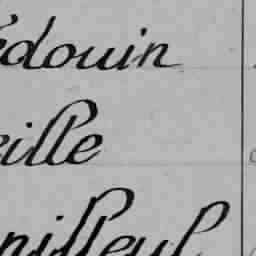 édouin
eille
nilleul